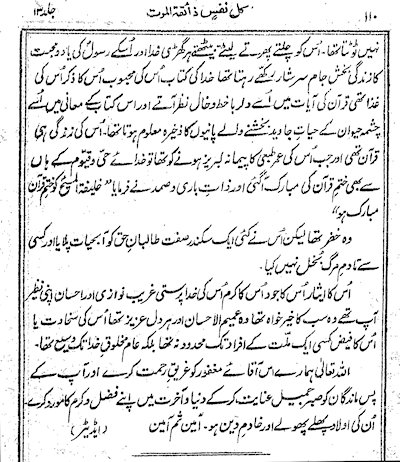 جلد ۱۳ کل نفس ذائقۃ الموت ۱۱۰
نہیں ٹوٹتا تھا۔ اُس کو چلتے پھرتے لیٹتے بیٹھتے ہر گھڑی خدا اور اُسکے رسولؐ کی یاد و محبت
کا زندگی بخش جام سرشار رکھے رہتا تھا خدا کی کتاب اس کی محبوب اُس کا ذکر اُس کی
غذا تھی قرآن کی آیات میں اُسے دلربا خط و خال نظر آتے اور اس کتاب کے معانی میں اُسے
چشمہ حیوان کے حیات جاوید بخشنے والے پانیوں کا ذخیرہ معلوم ہوتا تھا۔ اُس کی زندگی ہی
قرآن تھی اور جب اُس کی عمر طبعی کا پیمانہ لبریز ہونے کو تھا تو خدائے حی و قیوم کے ہاں
سے بھی ختم قرآن کی مبارک آ گئی اور ذات باری و صمد نے فرمایا "خلیفۃ المسیح کو ختم قرآن
مبارک ہو"
وہ خضر تھا لیکن اُس نے کئی ایک سکندر صفت طالبانِ حق کو آبحیات پلایا اور کسی
سے تا دمِ مرگ بُخل نہیں کیا۔
اُس کا ایثار اُس کا جود اُس کا کرم اُس کی خدا پرستی غریب نوازی اور احسان اپنی نظیر
آپ تھے وہ سب کا خیر خواہ تھا وہ عمیم الاحسان اور ہر دل عزیز تھا اُس کی سخاوت یا
اُس کا فیض کسی ایک ملّت کے افراد تک محدود نہ تھا بلکہ عام مخلوقِ خدا تک وسیع تھا۔
اللہ تعالیٰ ہمارے اس آقائے مغفور کو غریقِ رحمت کرے اور آپ کے
پس ماندگان کو صبر جمیل عنایت کر کے دنیا و آخرت میں اپنے فضل و کرم کا مورد کرے۔
اُن کی اولاد پھلے پھولے اور خادمِ دین ہو۔ آمین ثم آمین (ایڈیٹر)